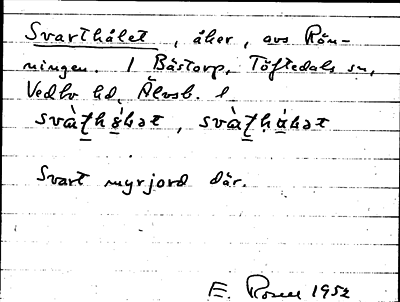 Svarthålet, åker, avs Rön-
ningen. 1 Båstorp, Töftedals sn,
Vedbo hd, Älvsb. l
Svart myrjord där.
E. Rosell 1952